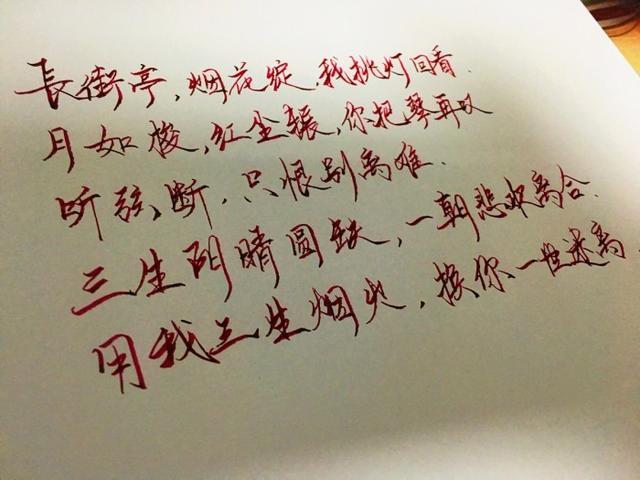 長街亭,烟花绽,我挑灯回看.
月如梭,红尘辗,你把琴再叹
听弦断,只恨别离难.
三生阴晴圆缺,一朝悲欢离合.
用我三生烟火,换你一世迷离.